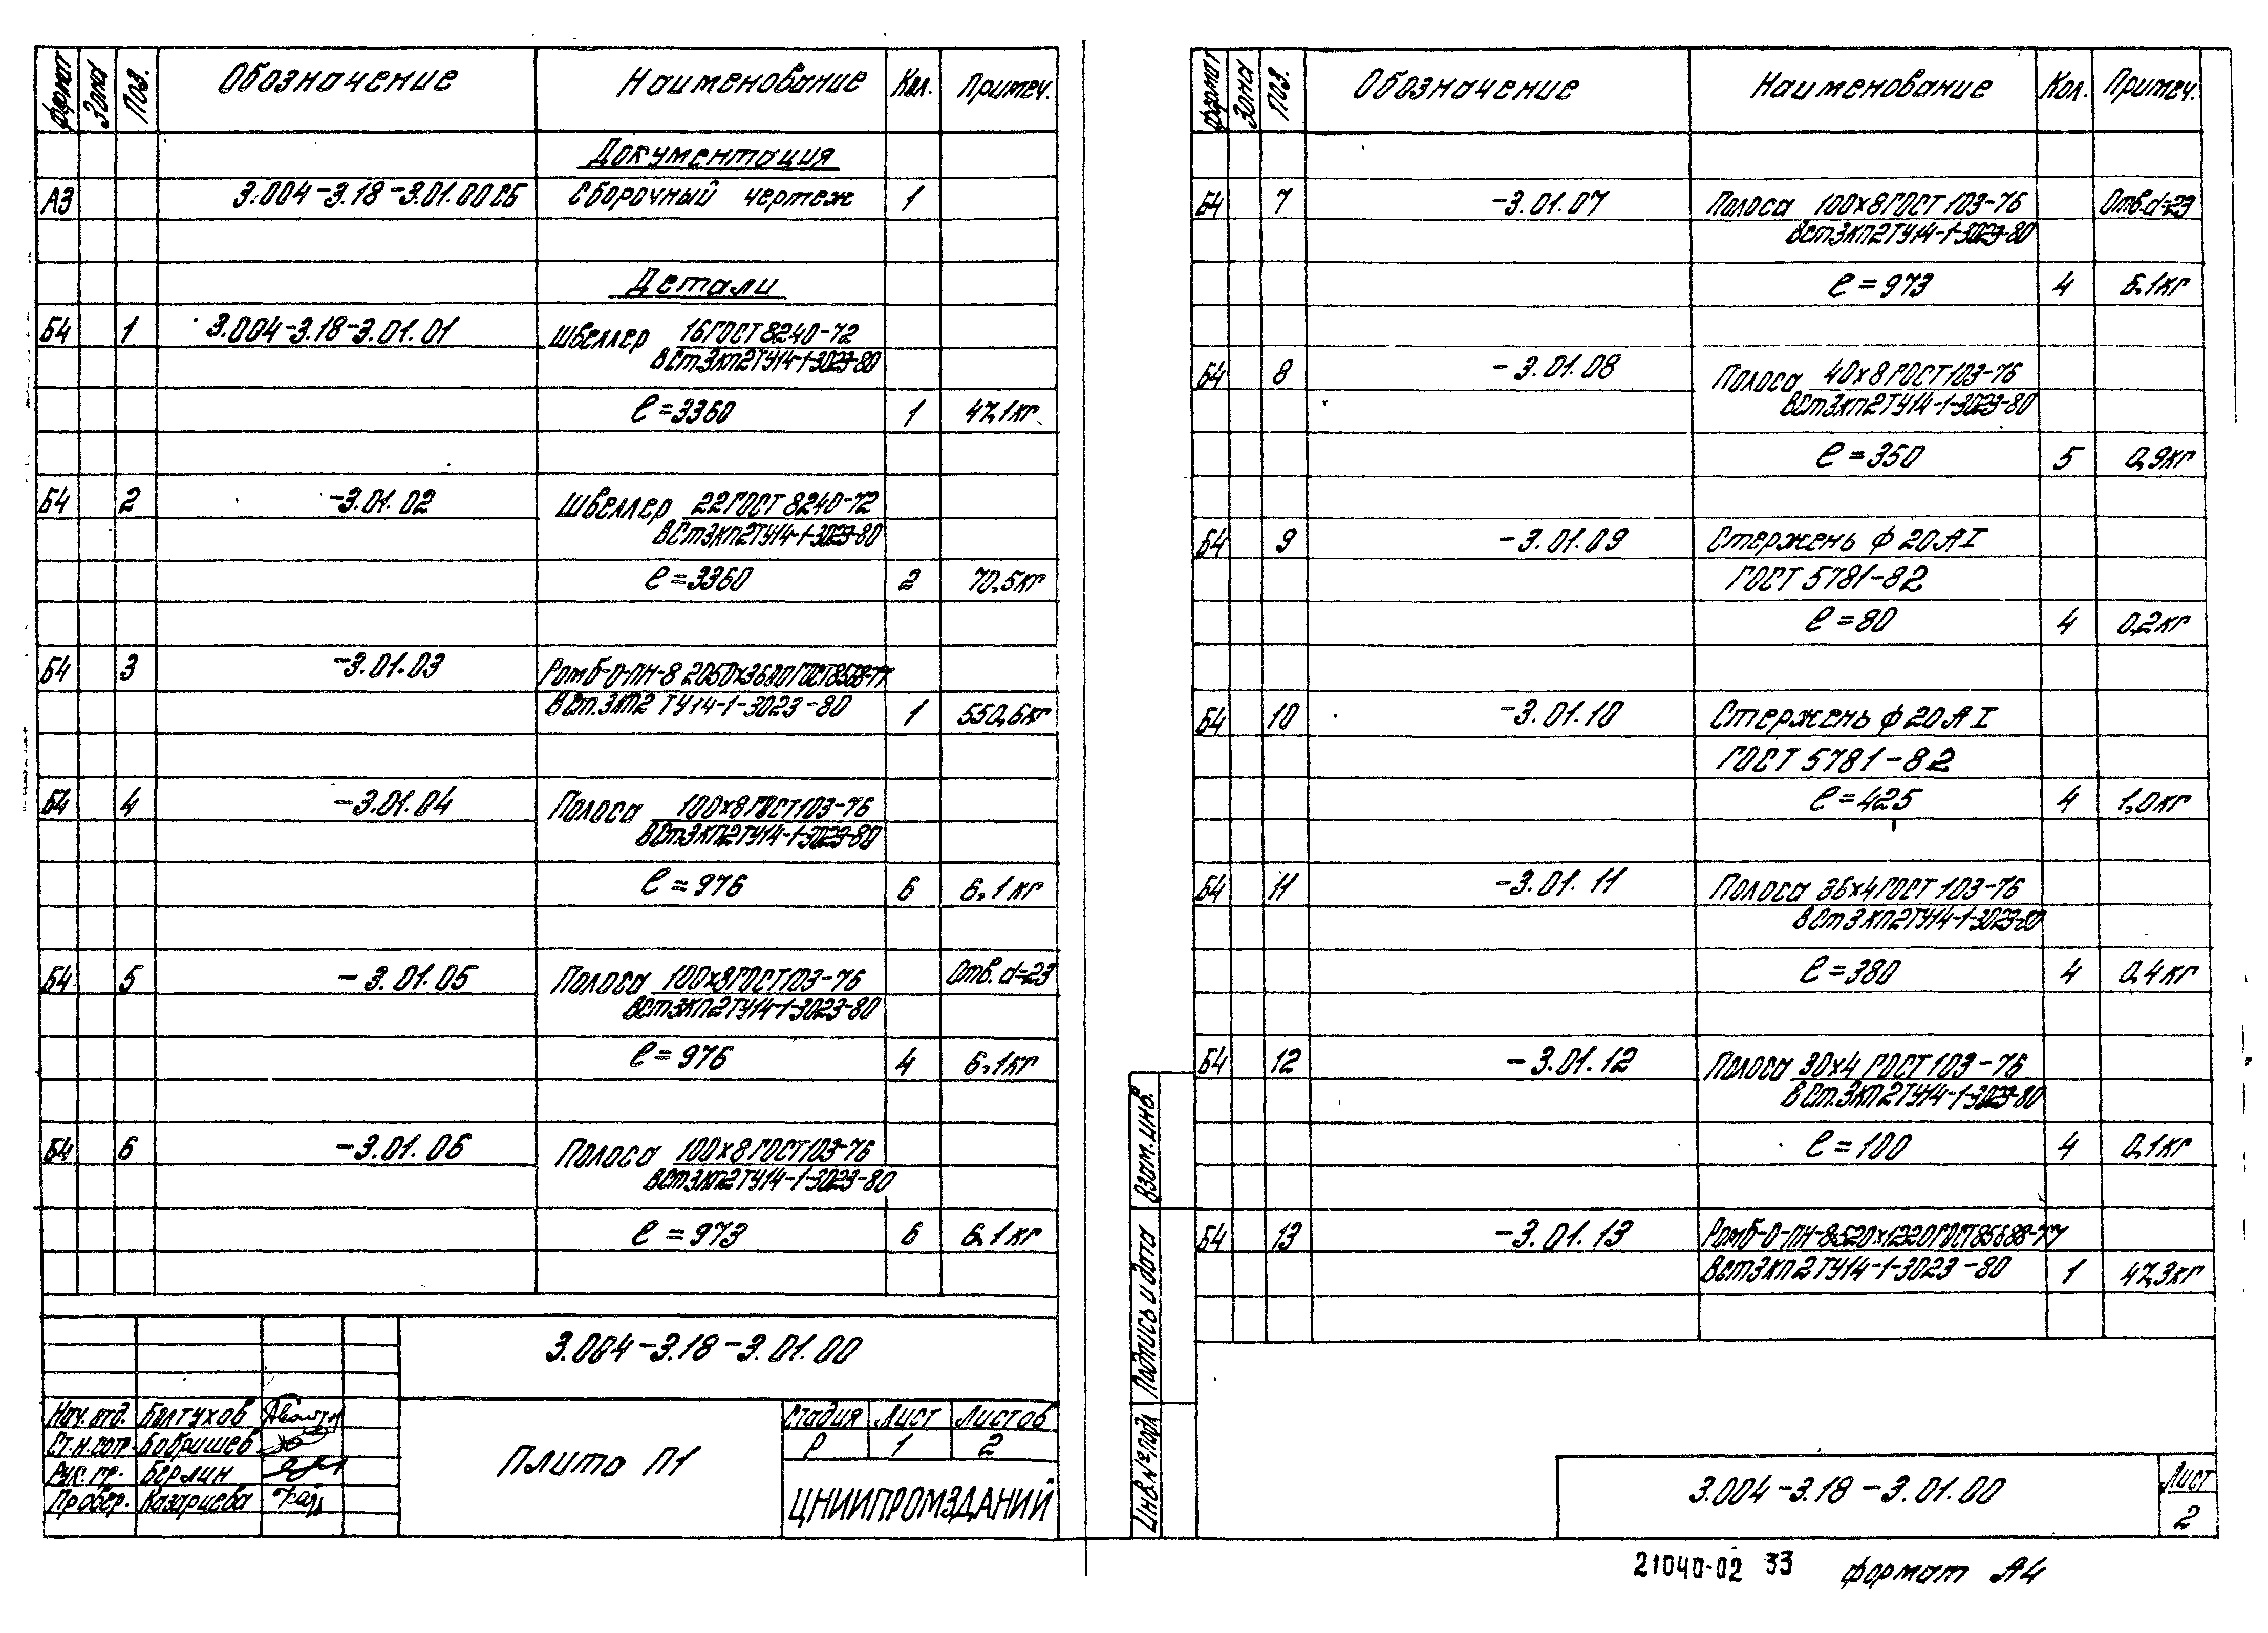 Формат Зона Поз. Обозначение Наименование Кол. Примеч.
Документация
А3 3.004-3.18-3.01.00СБ Сборочный чертеж 1
Детали
Б4 1 3.004-3.18-3.01.01 Швеллер 16ГОСТ 8240-72
ВСт.3кп2ТУ14-1-3023-80
ℓ=3360 1 47,1кг
Б4 2 -3.01.02 Швеллер 22ГОСТ 8240-72
ВСт3кп2ТУ14-1-3023-80
ℓ=3360 2 70,5кг
Б4 3 -3.01.03 Ромб-О-ПН-8 2050х3600ГОСТ8568-77
ВСт.3кп2 ТУ14-1-3023-80 1 550,6кг
Б4 4 -3.01.04 Полоса 100х8ГОСТ103-76
ВСт3кп2ТУ14-1-3023-80
ℓ=976 6 6,1кг
Б4 5 -3.01.05 Полоса 100х8ГОСТ103-76 Отв. d=23
ВСт3кп2ТУ14-1-3023-80
ℓ=976 4 6,1кг
Б4 6 -3.01.06 Полоса 100х8ГОСТ103-76
ВСт3кп2ТУ14-1-3023-80
ℓ=973 6 6,1кг
3.004-3.18-3.01.00
Нач. отд. Болтухов
Ст.н.сотр. Бобришев
Рук. гр. Берлин
Провер. Казарцева
Плита П1
Стадия Лист Листов
Р 1 2
ЦНИИПРОМЗДАНИЙ
Формат Зона Поз. Обозначение Наименование Кол. Примеч.
Б4 7 -3.01.07 Полоса 100х8ГОСТ103-76 Отв.d=23
ВСт3кп2ТУ14-1-3023-80
ℓ=973 4 6,1кг
Б4 8 -3.01.08 Полоса 40х8ГОСТ103-76
ВСт3кп2ТУ14-1-3023-80
ℓ=350 5 0,9кг
Б4 9 -3.01.09 Стержень ф20АI
ГОСТ 5781-82
ℓ=80 4 0,2кг
Б4 10 -3.01.10 Стержень ф20АI
ГОСТ 5781-82
ℓ=425 4 1,0кг
Б4 11 -3.01.11 Полоса 36х4ГОСТ 103-76
ВСт3кп2ТУ14-1-3023-80
ℓ=380 4 0,4кг
Б4 12 -3.01.12 Полоса 30х4 ГОСТ 103-76
ВСт.3кп2ТУ14-1-3023-80
ℓ=100 4 0,1кг
Б4 13 -3.01.13 Ромб-О-ПН-8520х1220ГОСТ85688-77
ВСт3кп2ТУ14-1-3023-80 1 47,3кг
Взам. инв.
Подпись и дата
Инв.№ подл
3.004-3.18-3.01.00
Лист
2
21040-02 33 формат А4